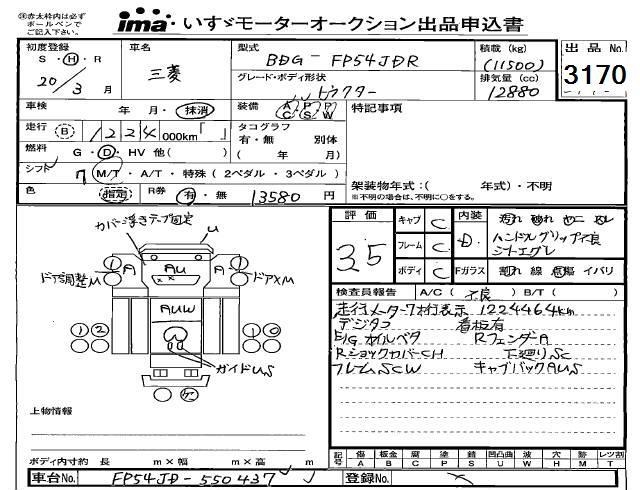 ※赤太枠内は必ず
ボールペンで
ご記入下さい。
ima いすゞモーターオークション出品申込書
初度登録
S・H・R
20/3月
車名
三菱
型式
BDG-FP54JDR
グレード・ボディ形状
トラクター
積載(kg)
(11500)
排気量(cc)
12880
出品No.
3170
車検 年・月・抹消
装備 A/C P/S P/W
特記事項
走行 B 1224 000km「 」
タコグラフ
有・無 別体
( 年 月)
燃料 G・D・HV 他( )
シフト 7 M/T・A/T・特殊(2ペダル・3ペダル)
色 指定
R券 有・無 13580円
架装物年式:( 年式)・不明
※不明の場合は、不明に○をする。
カバー浮きテープ固定
U
ドア調整M
A AU A
ドアXM
AUW
1 2
1 0
ガイドUS
上物情報
ボディ内寸約 長 m×幅 m×高 m
評価
35
キャブ C
フレーム C
ボディ C
内装 D
汚れ
ハンドルグリップ不良
シートエグレ
Fガラス 割れ 線 点傷 イバリ
検査員報告 A/C( 不良 ) B/T( )
走行メーター7桁表示 1224464km
デジタコ 看板有
E/Gオイルベタ RフェンダーA
RショックカバーCH 下廻りSC
フレームSCW キャブバックAUS
記号 傷A 板金B 腐C 塗P 錆S 凹凸曲U 波W 穴H 要M レツ割T
車台No. FP54JD-550437
登録No.